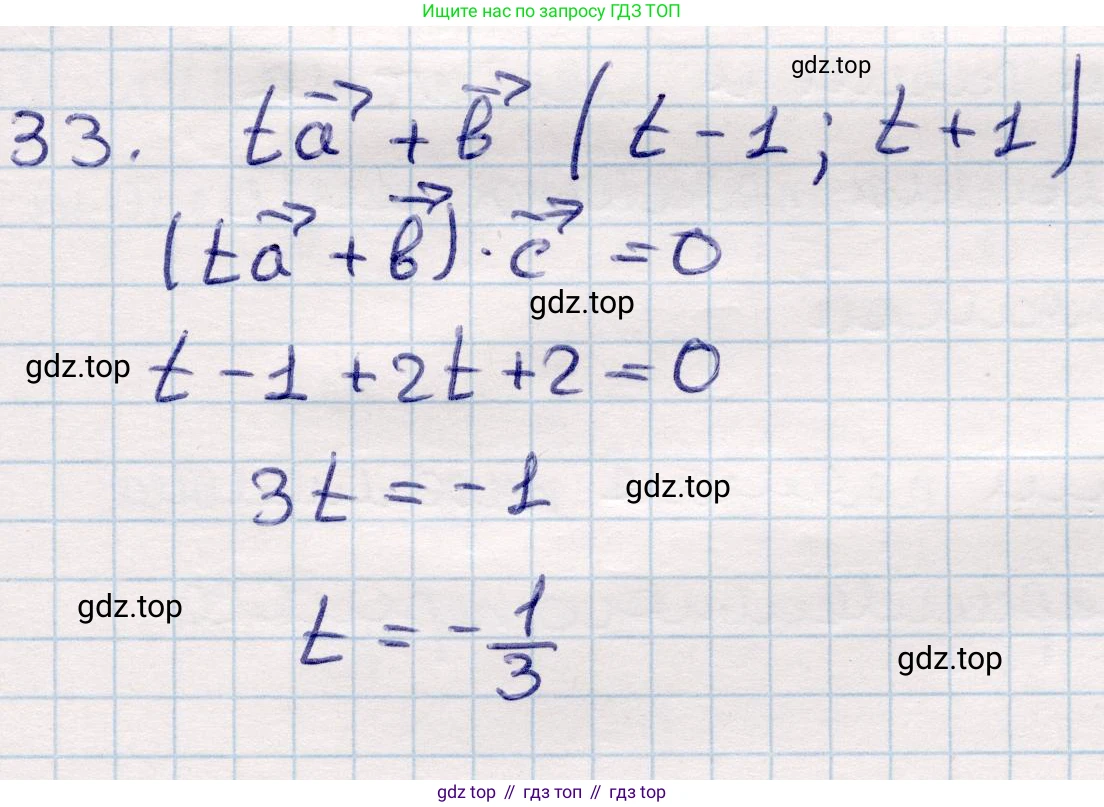 Ищите нас по запросу ГДЗ ТОП
gdz.top
33. ta⃗ + b⃗ (t - 1; t + 1)
(ta⃗ + b⃗) · c⃗ = 0
gdz.top
gdz.top
t - 1 + 2t + 2 = 0
3t = - 1
gdz.top
gdz.top
t = - 1/3
gdz.top
gdz top // гдз топ // гдз top